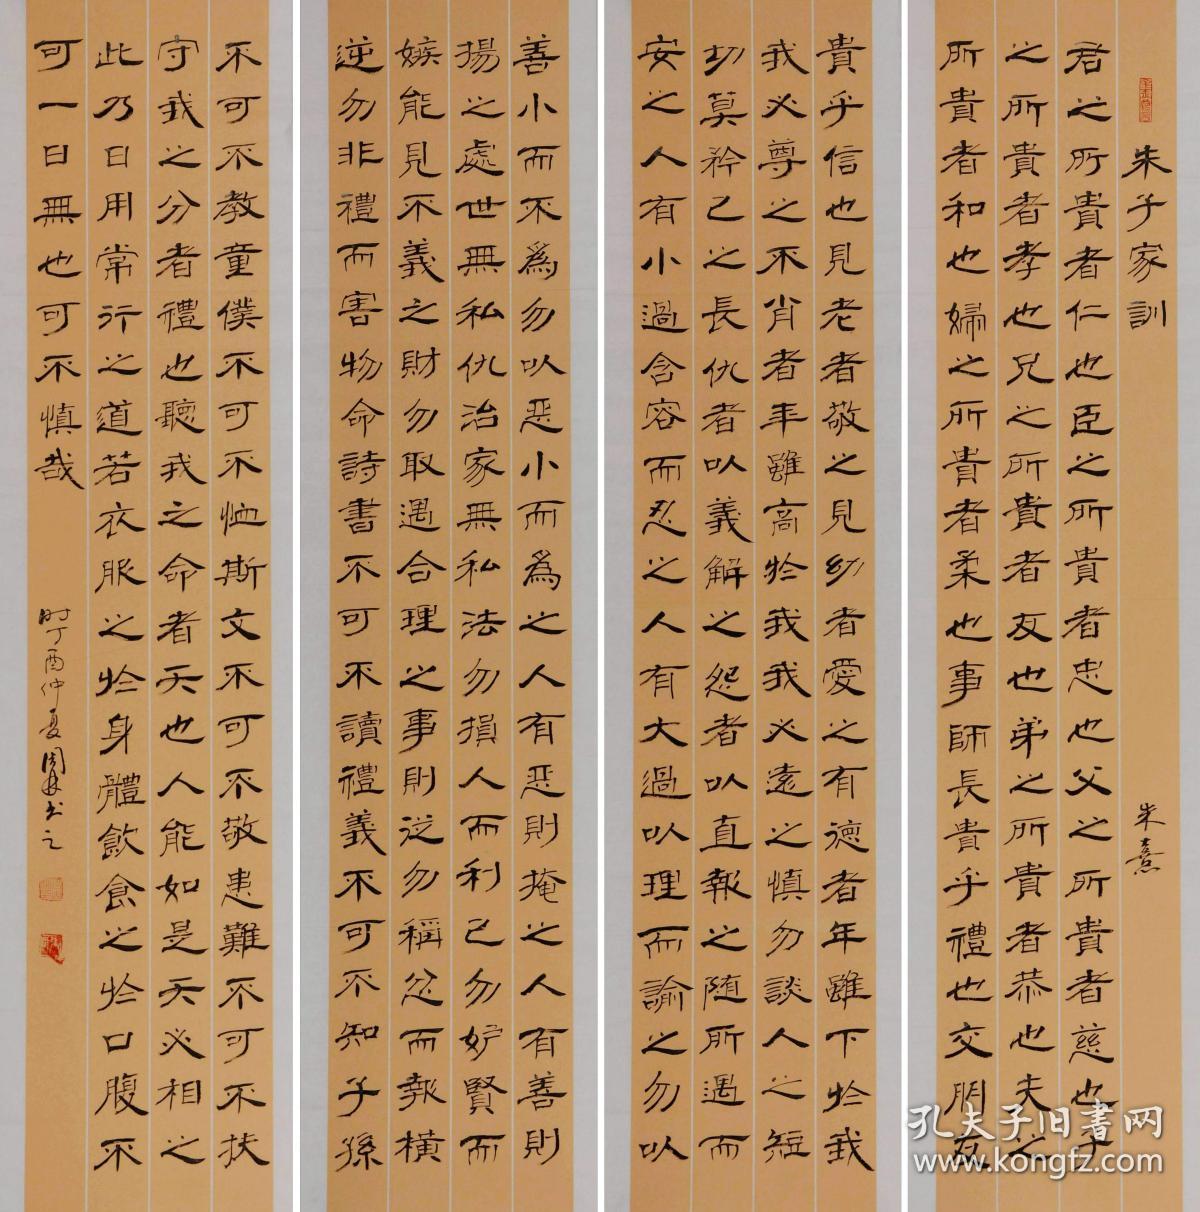 朱子家訓
朱熹
君之所貴者仁也臣之所貴者忠也父之所貴者慈也子
之所貴者孝也兄之所貴者友也弟之所貴者恭也夫之
所貴者和也婦之所貴者柔也事師長貴乎禮也交朋友
貴乎信也見老者敬之見幼者愛之有德者年雖下於我
我必尊之不肖者年雖高於我我必遠之慎勿談人之短
切莫矜己之長仇者以義解之怨者以直報之随所遇而
安之人有小過含容而忍之人有大過以理而諭之勿以
善小而不爲勿以恶小而爲之人有恶則掩之人有善則
揚之處世無私仇治家無私法勿損人而利己勿妒賢而
嫉能見不義之財勿取遇合理之事則從勿稱忿而報橫
逆勿非禮而害物命詩書不可不讀禮義不可不知子孫
不可不教童僕不可不恤斯文不可不敬患難不可不扶
守我之分者禮也聽我之命者天也人能如是天必相之
此乃日用常行之道若衣服之於身體飲食之於口腹不
可一日無也可不慎哉
时丁酉仲夏周书之
孔夫子旧书网
www.kongfz.com